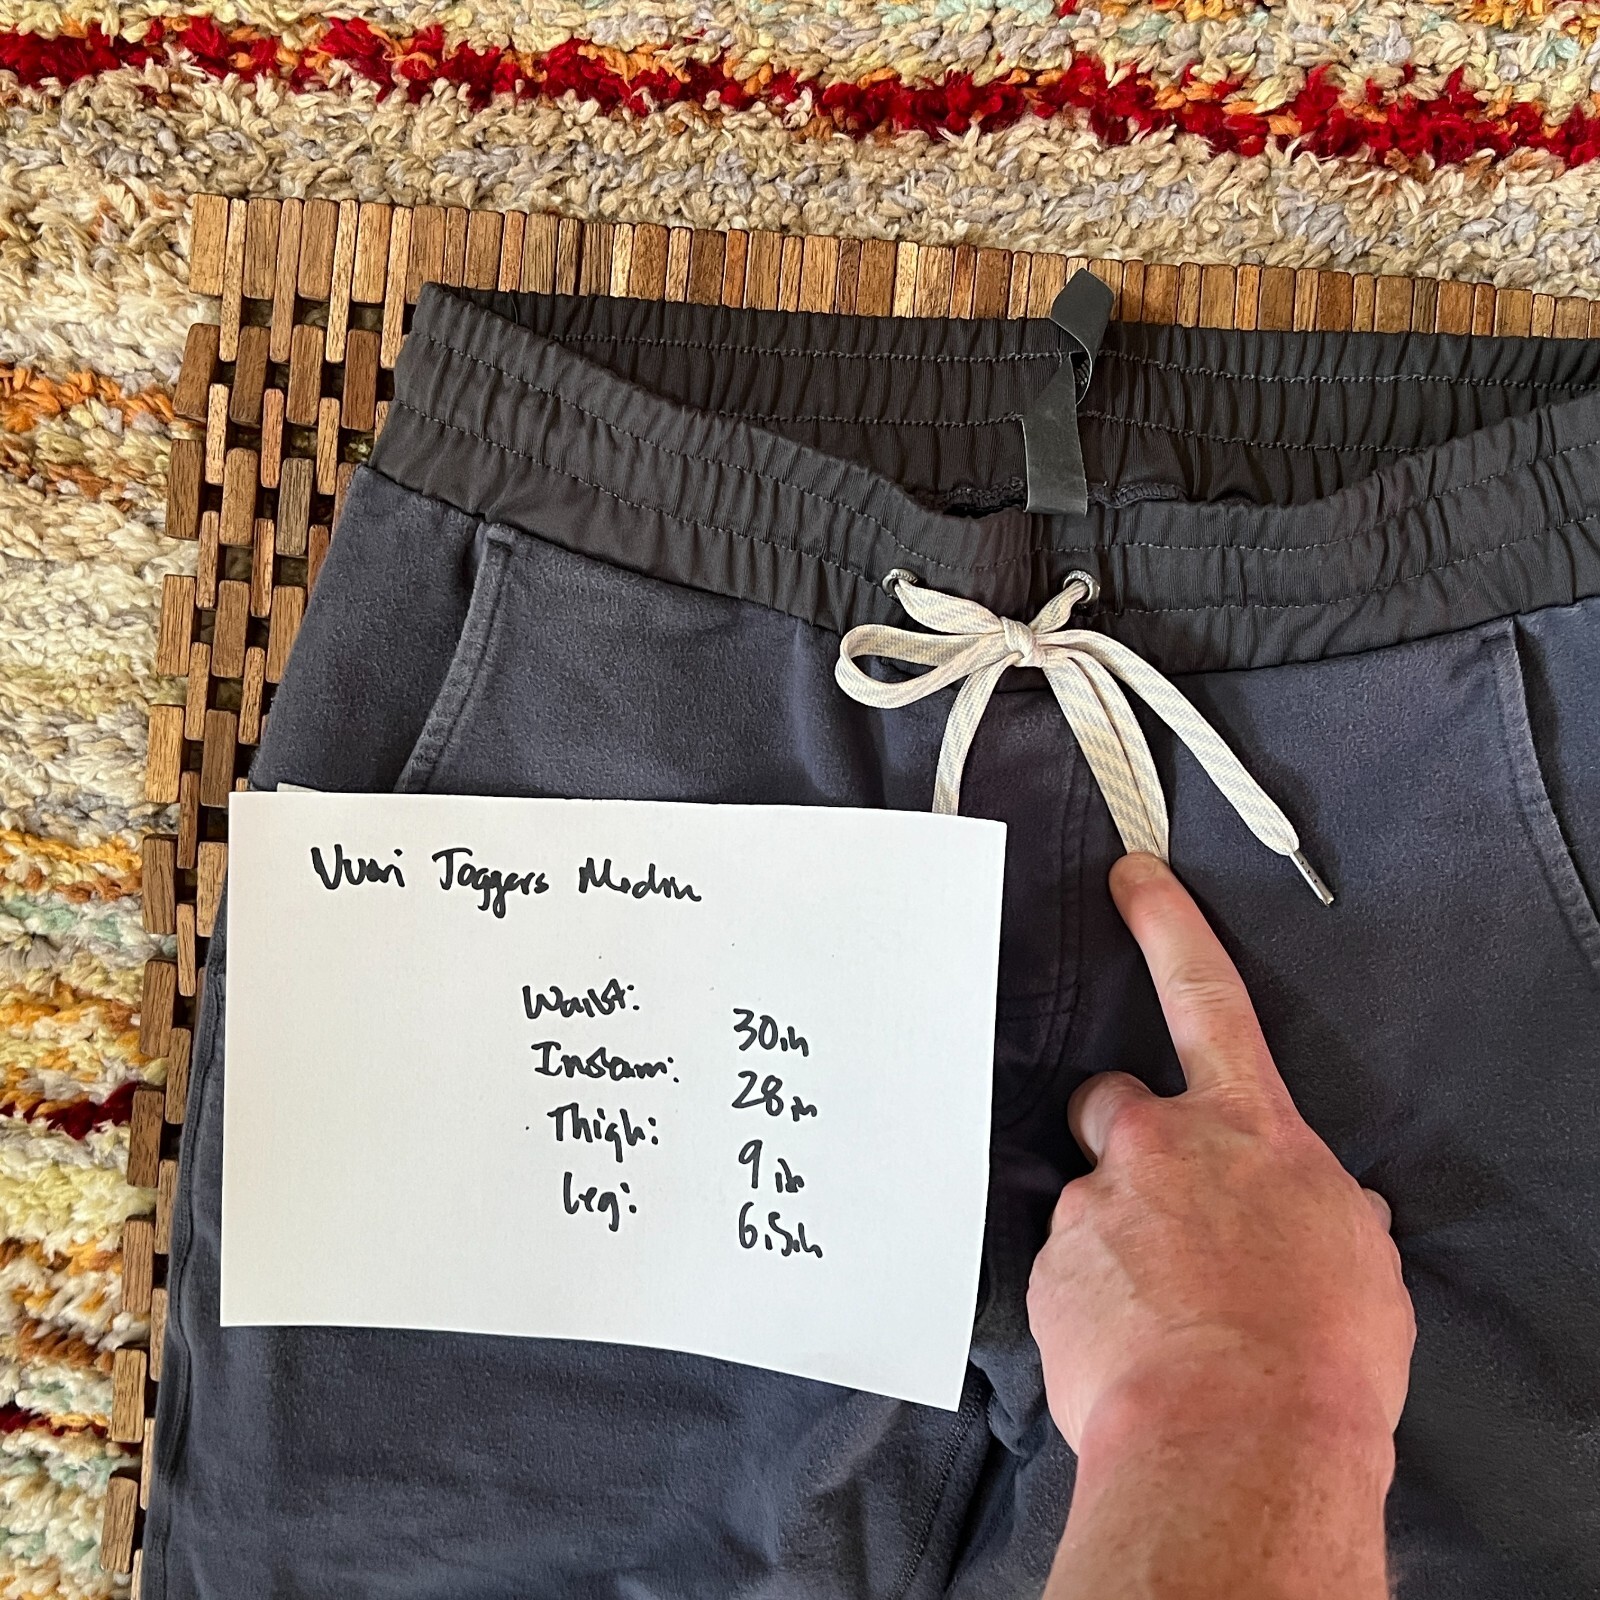 Vuori Joggers Medium
Waist: 30in
Inseam: 28in
Thigh: 9in
Leg: 6.5in